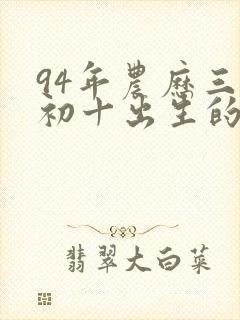 94年農歷三
初十出生的
翡翠大白菜